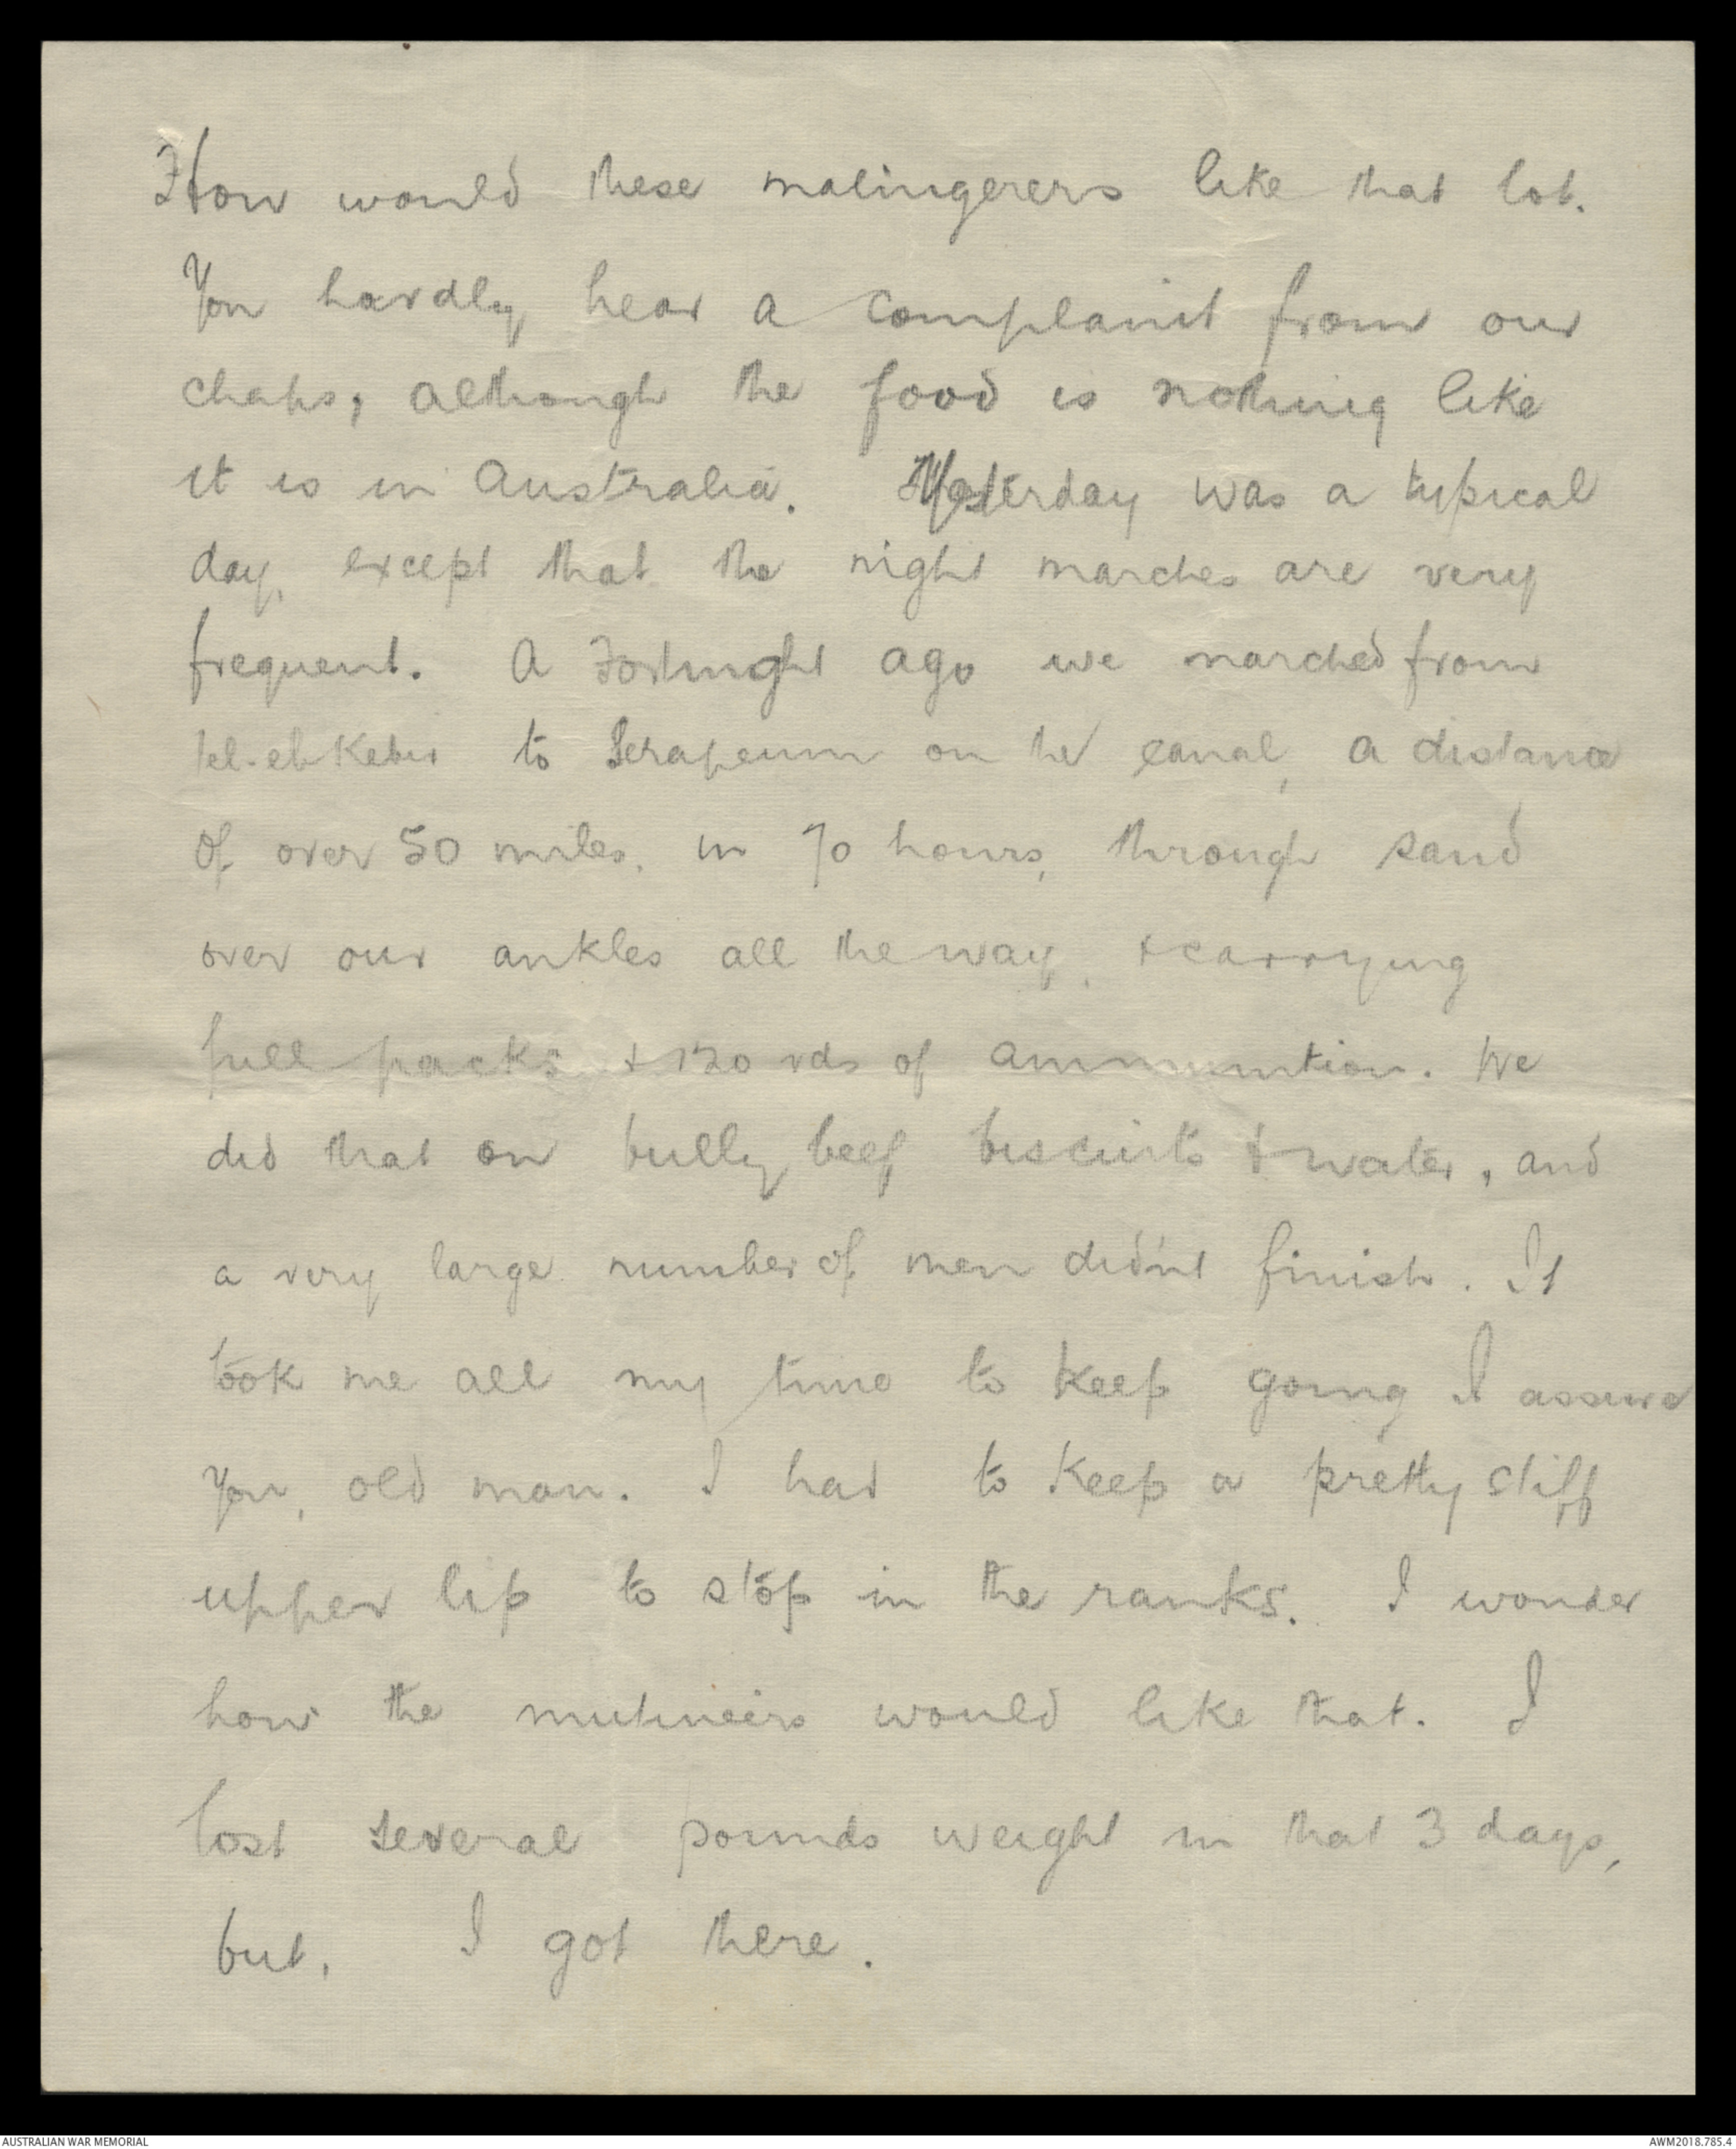 How would these malingerers like that lot.
You hardly hear a complaint from our
chaps, although the food is nothing like
it is in Australia. Yesterday was a typical
day, except that the night marches are very
frequent. A Fortnight ago we marched from
Tel-el-Kebir to Serapeum on the canal, a distance
of over 50 miles, in 70 hours, through sand
over our ankles all the way, & carrying
full packs & 120 rds of ammunition. We
did that on bully beef biscuits & water, and
a very large number of men didn't finish. It
took me all my time to keep going I assure
you, old man. I had to keep a pretty stiff
upper lip to stop in the ranks. I wonder
how the mutineers would like that. I
lost several pounds weight in that 3 days,
but, I got there.
AUSTRALIAN WAR MEMORIAL
AWM2018.785.4